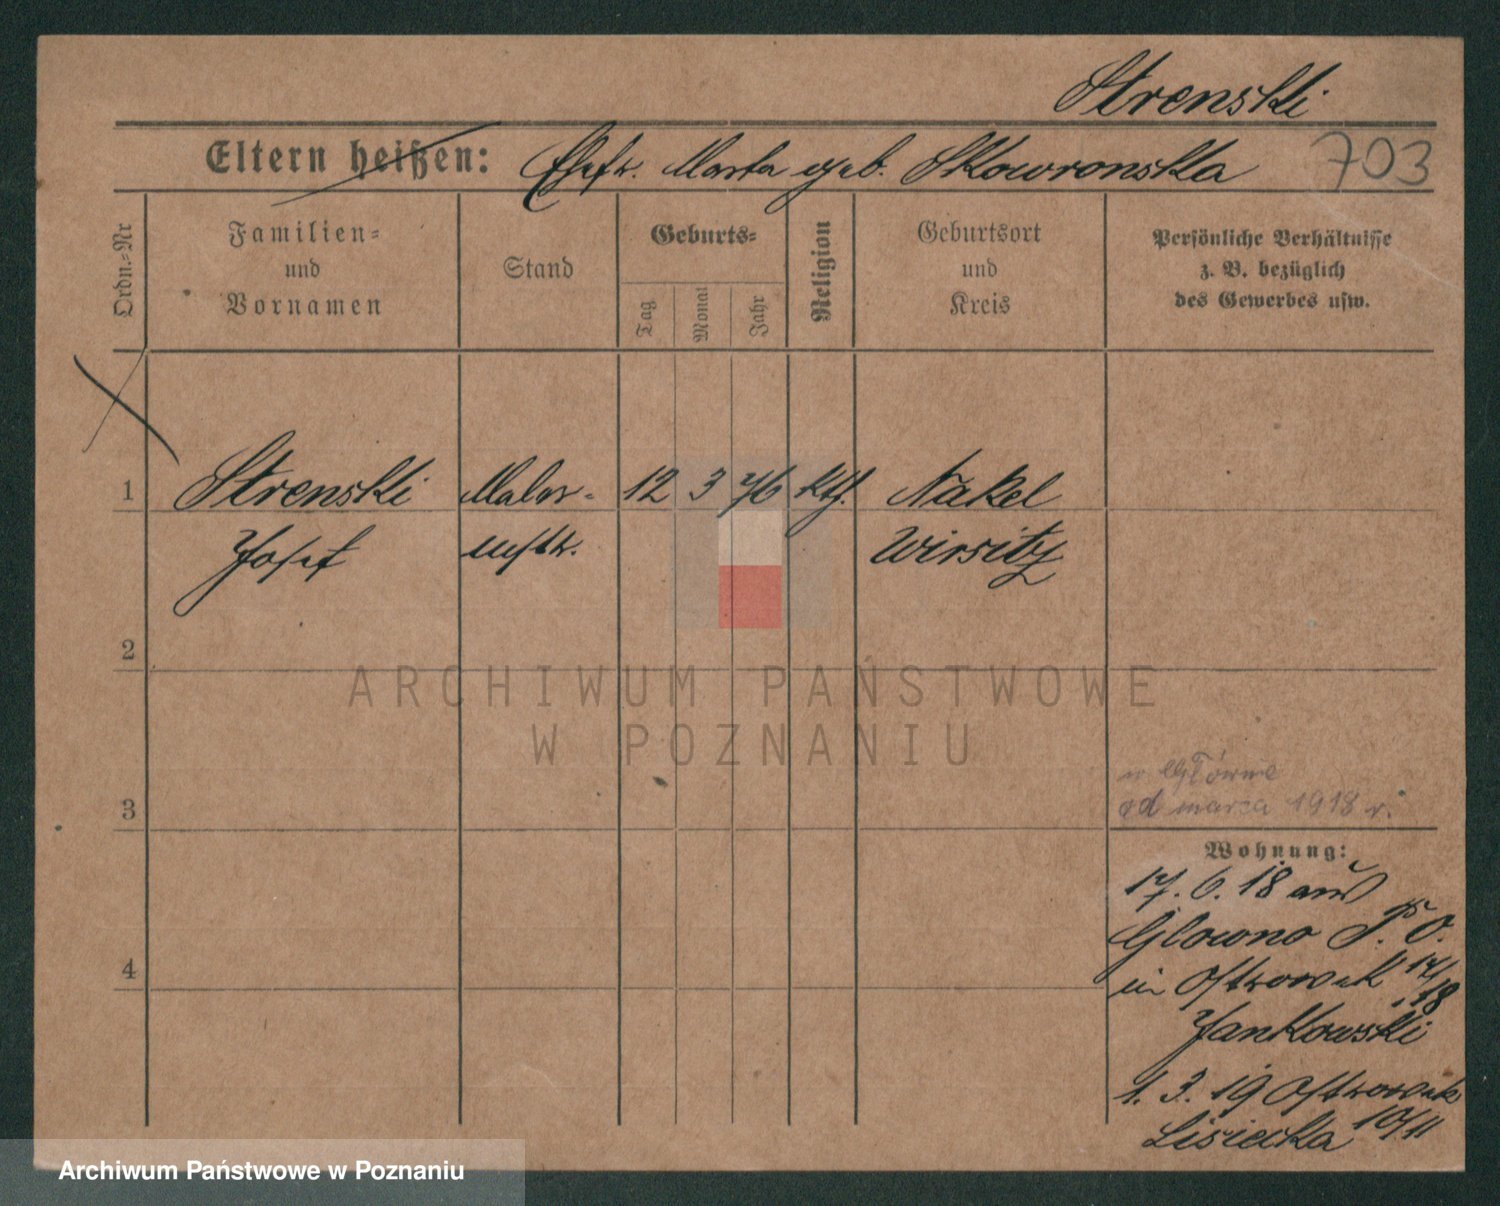 Strenski
Eltern heißen: Ehefr. Marta geb. Skowronska 703
Ordn.=Nr
Familien=
und
Vornamen
Stand
Geburts=
Tag
Monat
Jahr
Religion
Geburtsort
und
Kreis
Persönliche Verhältnisse
z. B. bezüglich
des Gewerbes usw.
1 Strenski Maler- 12 3 76 kth. Nakel
Josef Wirsitz
2
ARCHIWUM PAŃSTWOWE
W POZNANIU
w Głównie
3 od marca 1918 r.
Wohnung:
17. 6. 18 aus
Glowno P. O.
4 in Ostrowek 17/18
Jankowski
1. 3. 19 Ostrowek
Lisiecka 10/11
Archiwum Państwowe w Poznaniu